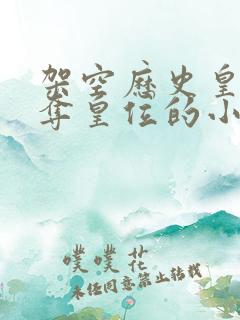 架空历史皇
夺皇位的小
噗噗花
未经同意禁止转载